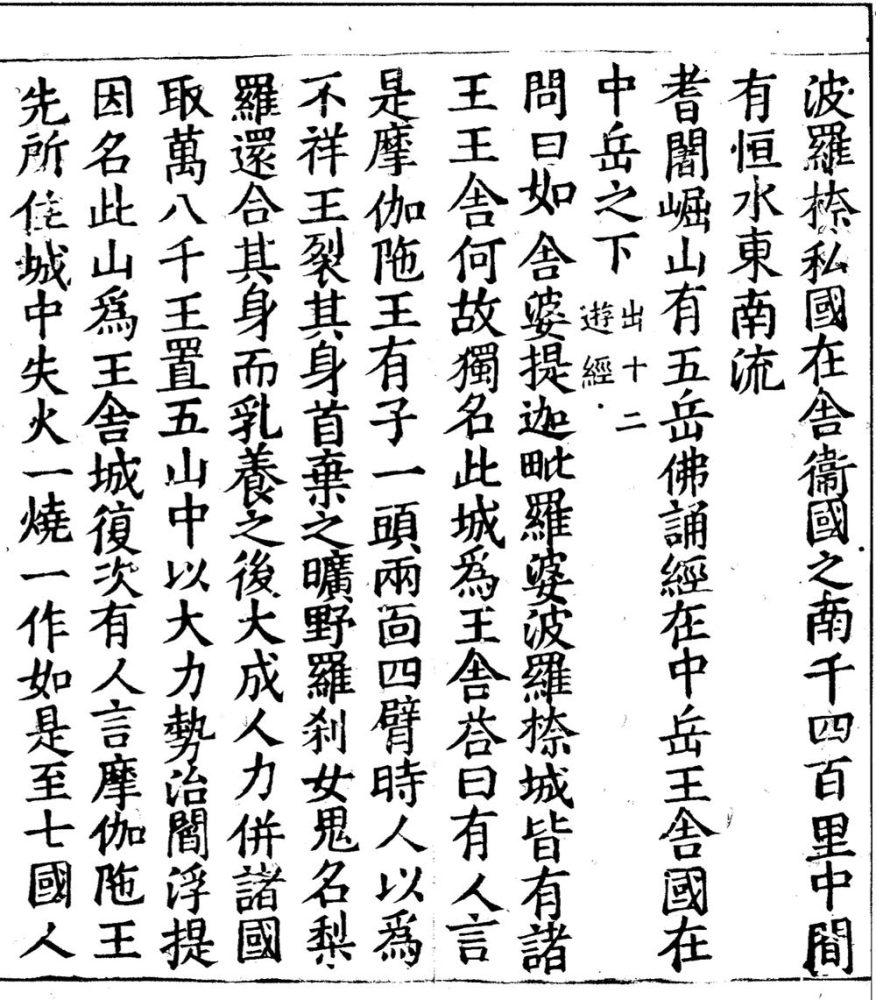 波羅㮈私國在舎衞國之南千四百里中間
有恒水東南流
耆闍崛山有五岳佛誦經在中岳王舎國在
中岳之下出十二
遊經
問曰如舎婆提迦毗羅婆波羅㮈城皆有諸
王王舎何故獨名此城爲王舎荅曰有人言
是摩伽陁王有子一頭兩靣四臂時人以爲
不祥王裂其身首棄之曠野羅刹女鬼名梨
羅還合其身而乳養之後大成人力併諸國
取萬八千王置五山中以大力勢治閻浮提
因名此山爲王舎城復次有人言摩伽陁王
先所住城中失火一燒一作如是至七國人